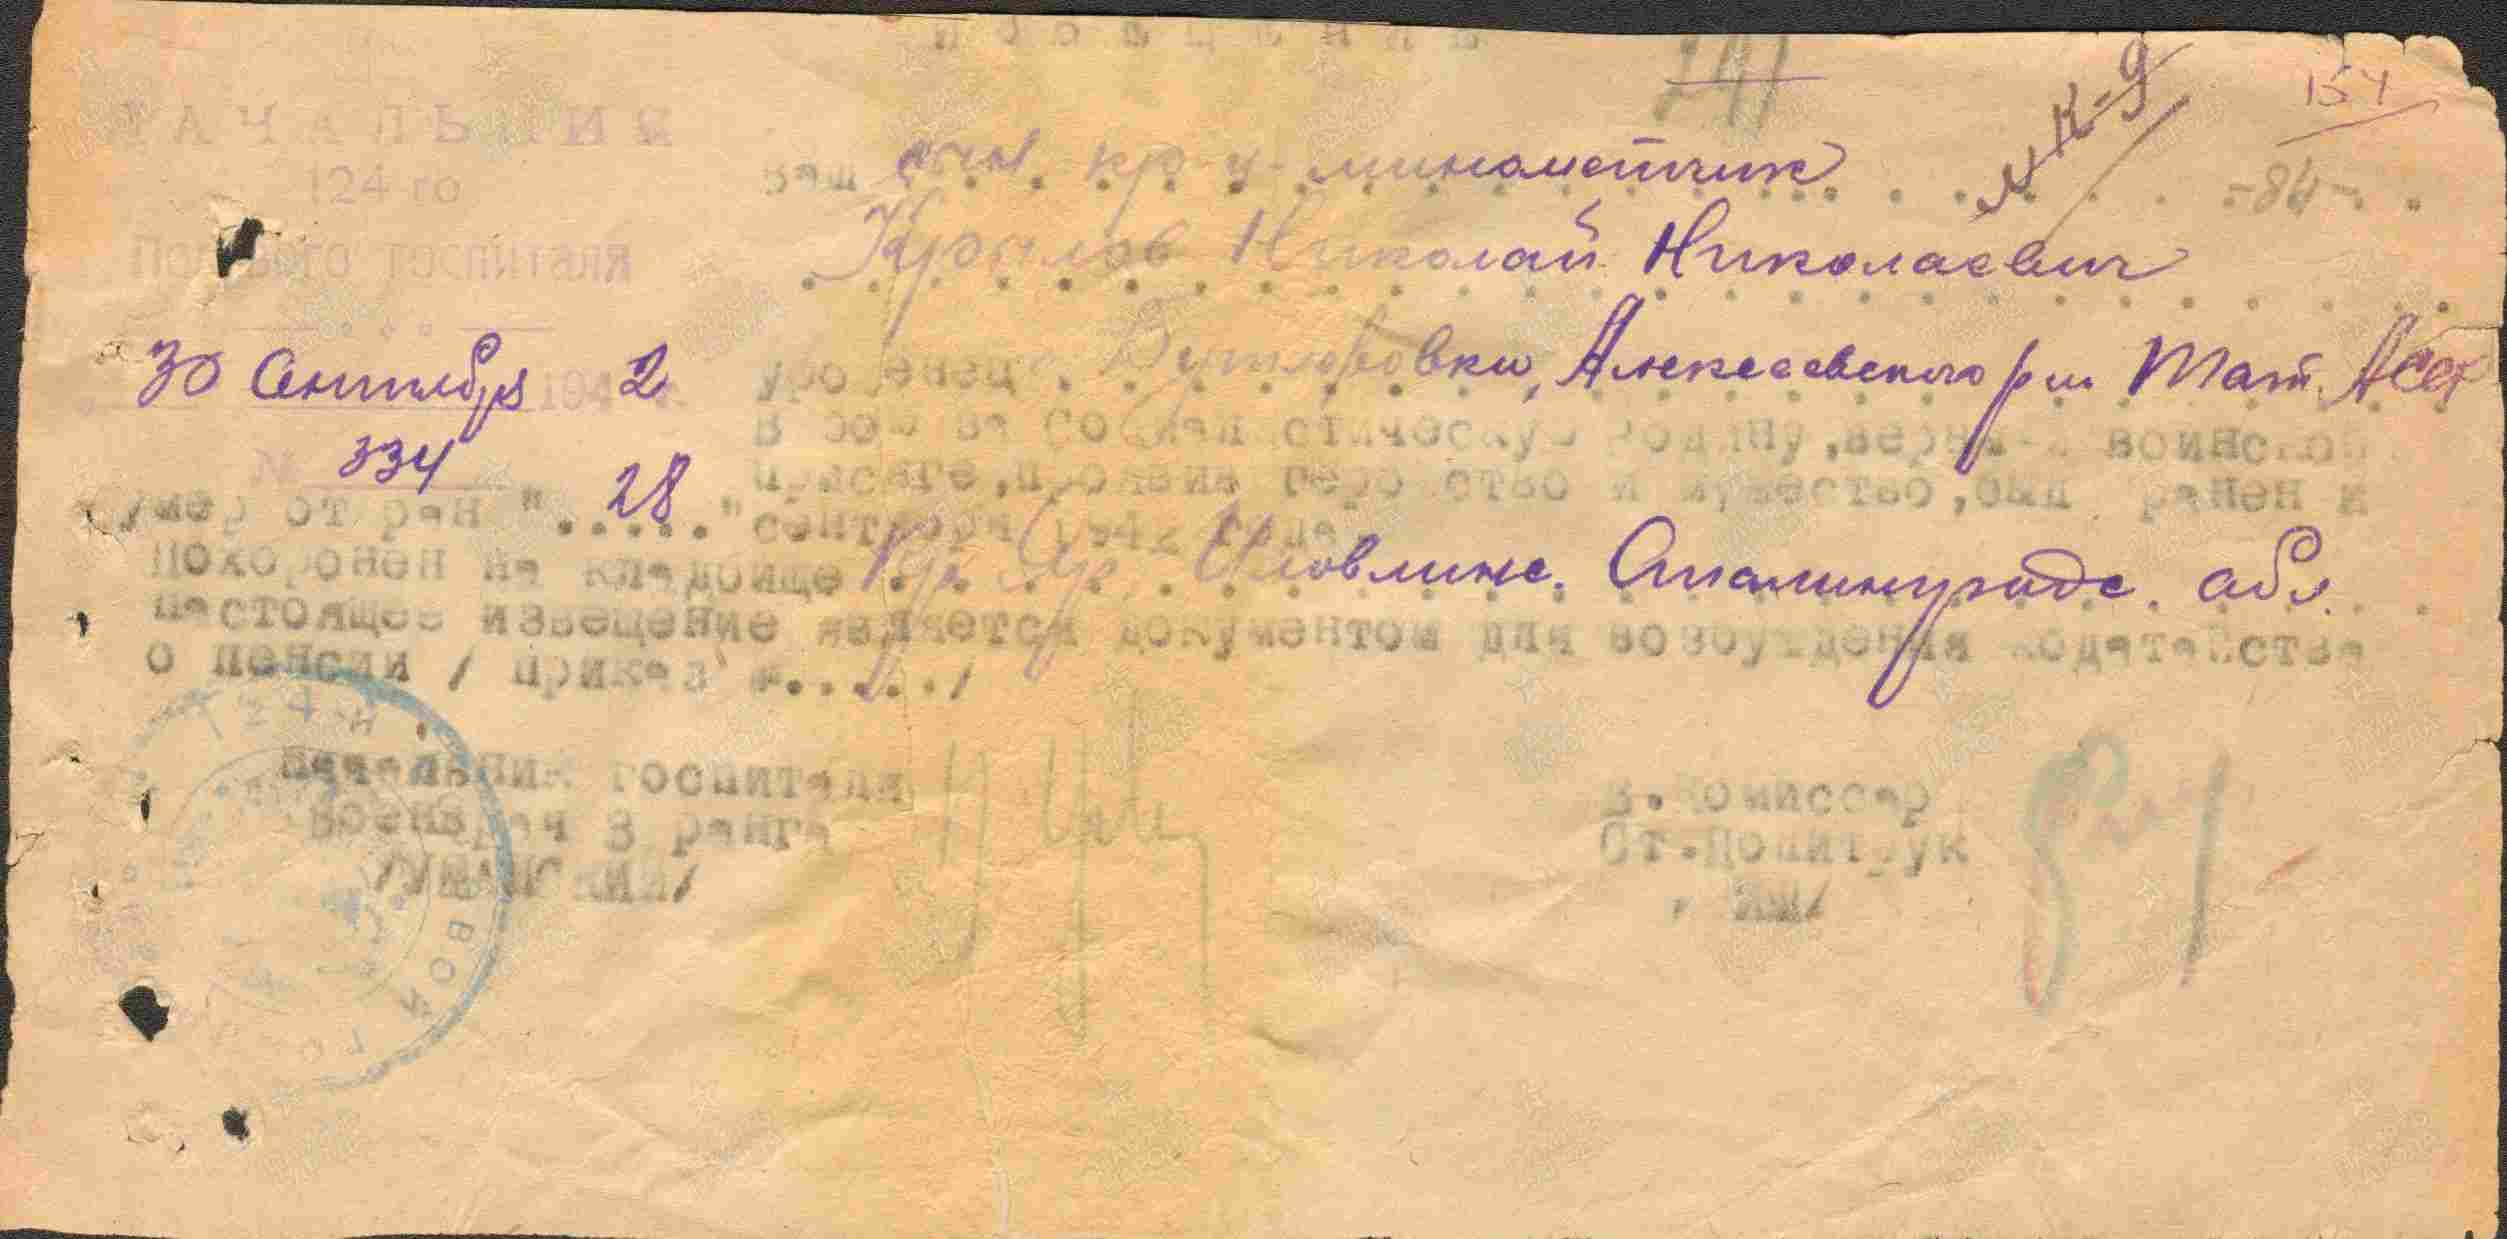 Извещение
НАЧАЛЬНИК
124 го
Полевого госпиталя
30 Сентября 1942 г.
№ 334
241
154
-84-
Ваш сын кр-ц минометчик
Крылов Николай Николаевич
уроженец Бутлеровки, Алексеевского р-на Тат. АССР
в бою за Социалистическую Родину, верный воинской
присяге, проявив геройство и мужество, был ранен и
умер от ран "28" сентября 1942 года
похоронен на кладбище Иловлинс. Сталинградс. обл.
настоящее извещение является документом для возбуждения ходатайства
о пенсии / приказ №...../
Начальник госпиталя
военврач 3 ранга
/УМАНСКИЙ/
В.Комиссар
Ст.Политрук
124
ПОЛЕВОЙ ГО